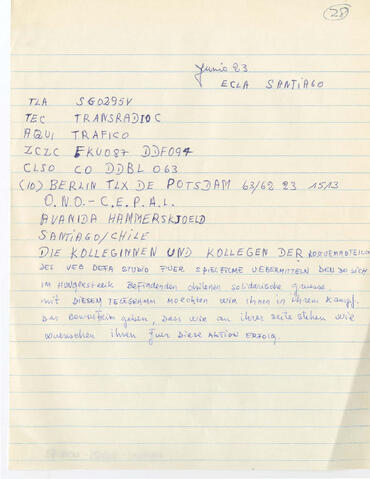 28
Junio 23
ECLA SANTIAGO
TLA SG0295V
TEC TRANSRADIO C
AQUI TRAFICO
ZCZC FKU087 DDF094
CLSO CO DDBL 063
(10) BERLIN TLX DE POTSDAM 63/62 23 1513
O.N.O.-C.E.P.A.L.
AVANIDA HAMMERSKJOELD
SANTIAGO/CHILE
DIE KOLLEGINNEN UND KOLLEGEN DER
DES VEB DEFA STUDIO FUER SPIELFILME UEBERMITTELN DEN SICH
IM HUNGERSTREIK BEFINDENDEN CHILENEN SOLIDARISCHE GRUESSE.
MIT DIESEM TELEGRAMM MOECHTEN WIR IHNEN IN IHREM KAMPF.
DAS BEWUSTSEIN GEBEN, DASS WIR AN IHRER SEITE STEHEN WIR
WUENSCHEN IHNEN FUER DIESE AKTION ERFOLG.